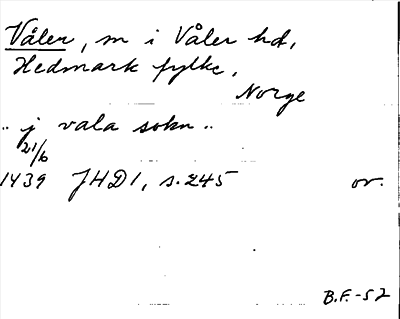 Våler, m i Våler hd,
Hedmark fylke,
Norge
.. j vala sokn ..
21/6
1439 JHD 1, s. 245 or.
B.F.-52